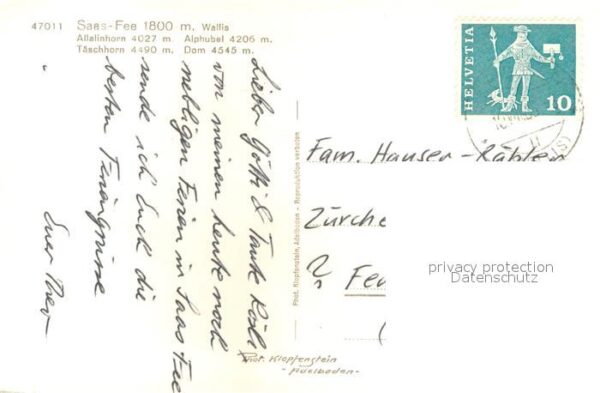 47011 Saas-Fee 1800 m, Wallis
Allalinhorn 4027 m Alphubel 4206 m.
Täschhorn 4490 m. Dom 4545 m.
Lieber Götti & Tante
von meinen heute noch
nebligen Ferien in Saas Fee
sende ich Euch die
besten Feriengrüsse
Euer
Phot. Klopfenstein, Adelboden - Reproduktion verboten
HELVETIA
10
Fam. Hauser-
Zürche
?
privacy protection
Datenschutz
Phot. Klopfenstein
- Adelboden -